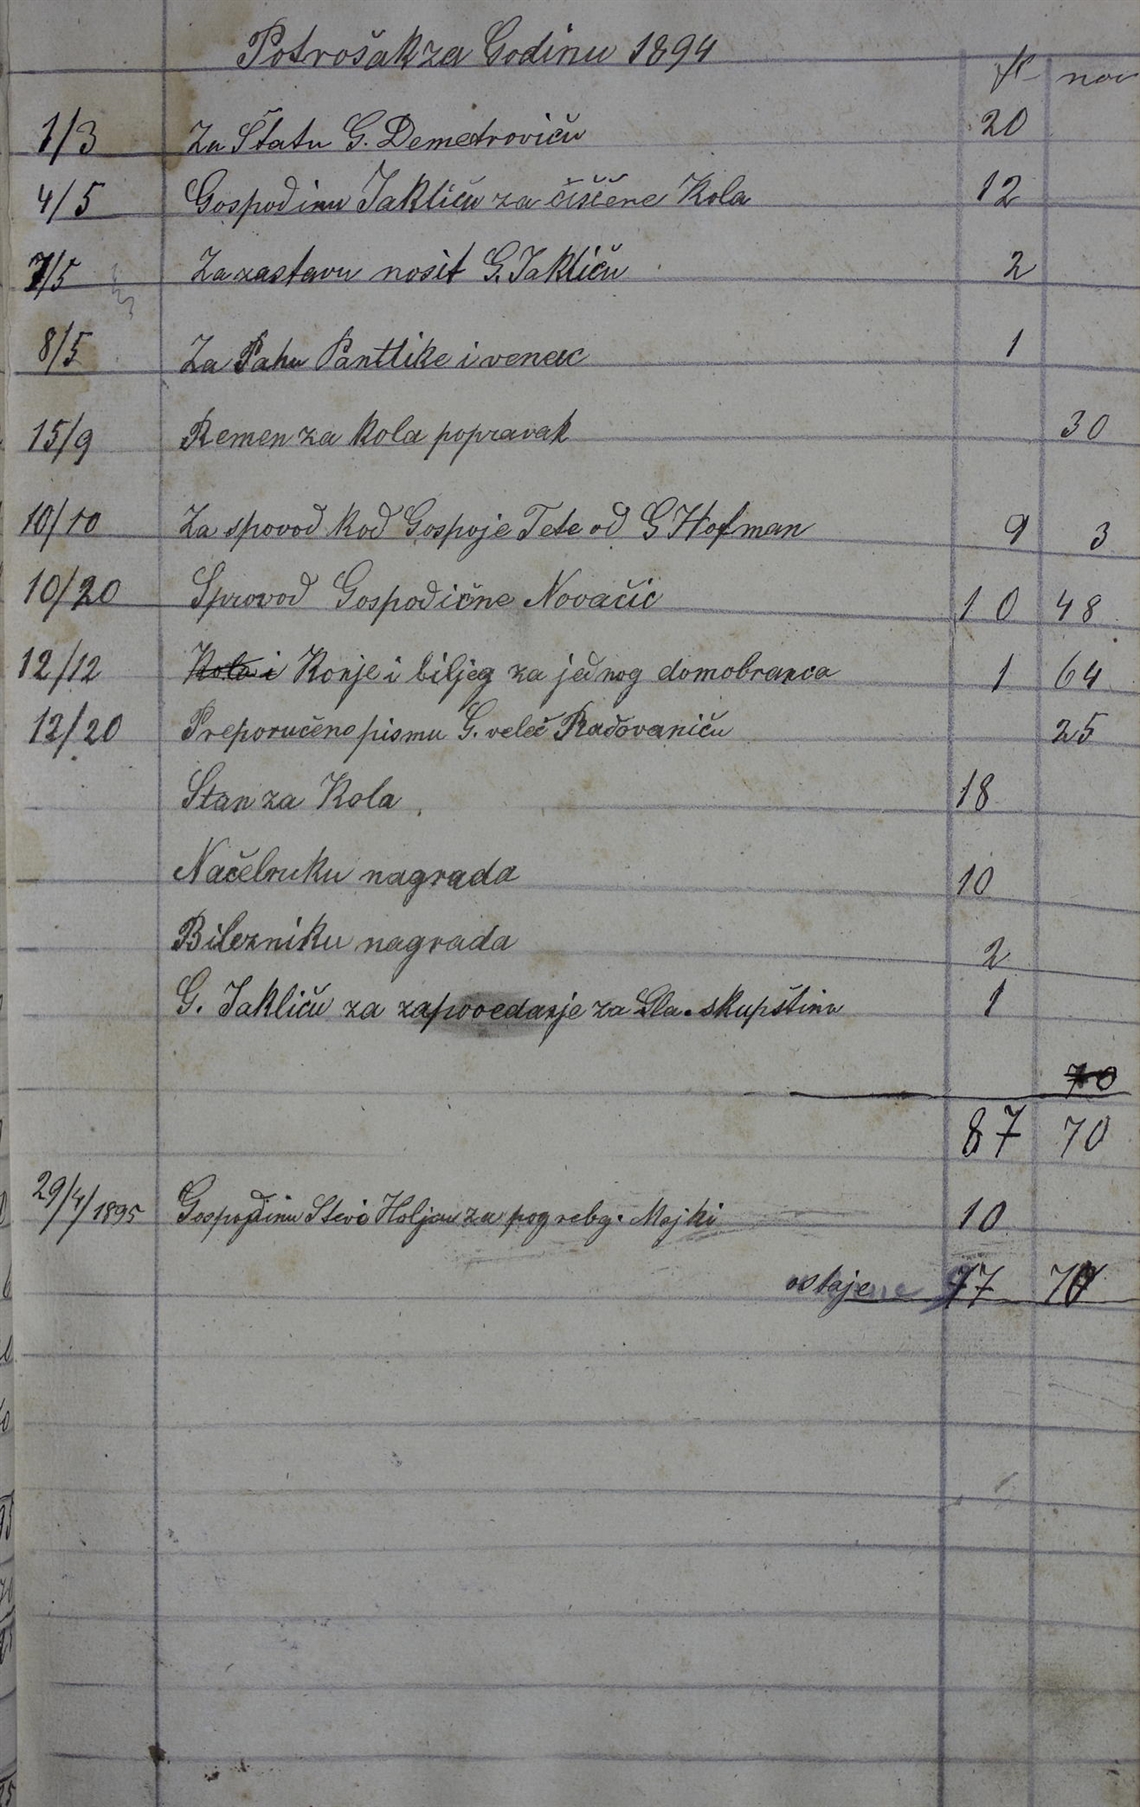 Potrošak za Godinu 1894
fr nov
1/3 Za Štatu G. Demetroviču 20
4/5 Gospodinu Jakliču za čiščene Kola 12
7/5 Za zastavu nosit G. Jakliču 2
8/5 Za Pahu Pantlike i venac 1
15/9 Remen za kola popravak 30
10/10 Za spovod kod Gospoje Tete od G Hofman 9 3
10/20 Sprovod Gospodične Novačic 10 48
12/12 Kola i Konje i biljeg za jednog domobranca 1 64
12/20 Preporučeno pismu G. veleč Radovaniču 25
Stan za Kola 18
Načelniku nagrada 10
Bilezniku nagrada 2
G. Jakliču za zapovedanje za Gla. skupštinu 1
70
87 70
29/4/1895 Gospodinu Stevo Holjcu za pogreb g. Majki 10
ostaje 77 70